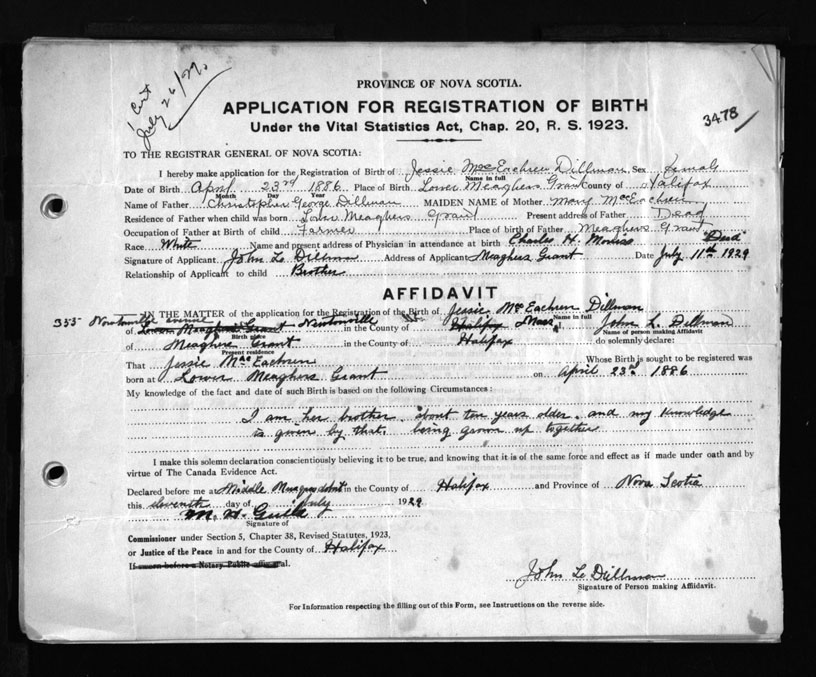 1 Cert
July 26/29.
3478
PROVINCE OF NOVA SCOTIA.
APPLICATION FOR REGISTRATION OF BIRTH
Under the Vital Statistics Act, Chap. 20, R. S. 1923.
TO THE REGISTRAR GENERAL OF NOVA SCOTIA:
I hereby make application for the Registration of Birth of Jessie MacEachren Dillman Sex Female
Name in full
Date of Birth April 23rd 1886 Place of Birth Lower Meaghers Grant County of Halifax
Month Day Year
Name of Father Christopher George Dillman MAIDEN NAME of Mother Mary MacEachren
Residence of Father when child was born Lower Meaghers Grant Present address of Father Dead
Occupation of Father at Birth of child Farmer Place of birth of Father Meaghers Grant
Race White Name and present address of Physician in attendance at birth Charles H. "Dead"
Signature of Applicant John L. Dillman Address of Applicant Meaghers Grant Date July 11th 1929
Relationship of Applicant to child Brother
AFFIDAVIT
IN THE MATTER of the application for the Registration of the Birth of Jessie McEachren Dillman
Name in full
355 Newtonville avenue
of Lower Meaghers Grant Newtonville in the County of Halifax Mass I, John L. Dillman
Birth place Name of person making Affidavit
of Meaghers Grant in the County of Halifax do solemnly declare:
Present residence
That Jessie MacEachren Whose Birth is sought to be registered was
born at Lower Meaghers Grant on April 23rd 1886
My knowledge of the fact and date of such Birth is based on the following Circumstances:
I am her brother about ten years older. and my knowledge
is given by that. being grown up together
I make this solemn declaration conscientiously believing it to be true, and knowing that it is of the same force and effect as if made under oath and by
virtue of The Canada Evidence Act.
Declared before me at Middle in the County of Halifax and Province of Nova Scotia
this eleventh day of July 1929
M. H. Guild
Signature of
Commissioner under Section 5, Chapter 38, Revised Statutes, 1923,
or Justice of the Peace in and for the County of Halifax
If sworn before a Notary Public affix seal.
John L Dillman
Signature of Person making Affidavit.
For Information respecting the filling out of this Form, see Instructions on the reverse side.